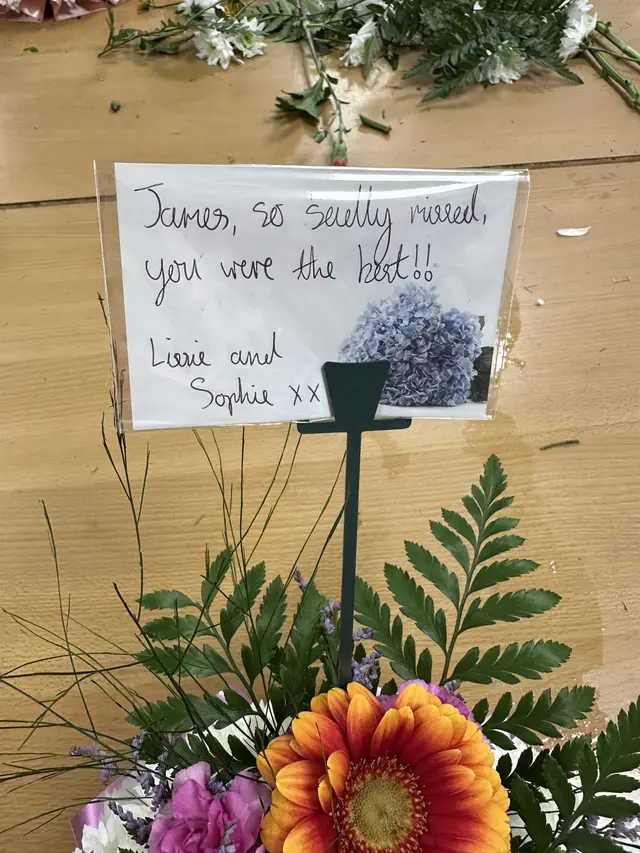 James, so sadly missed,
you were the best!!
Lizzie and
Sophie xx